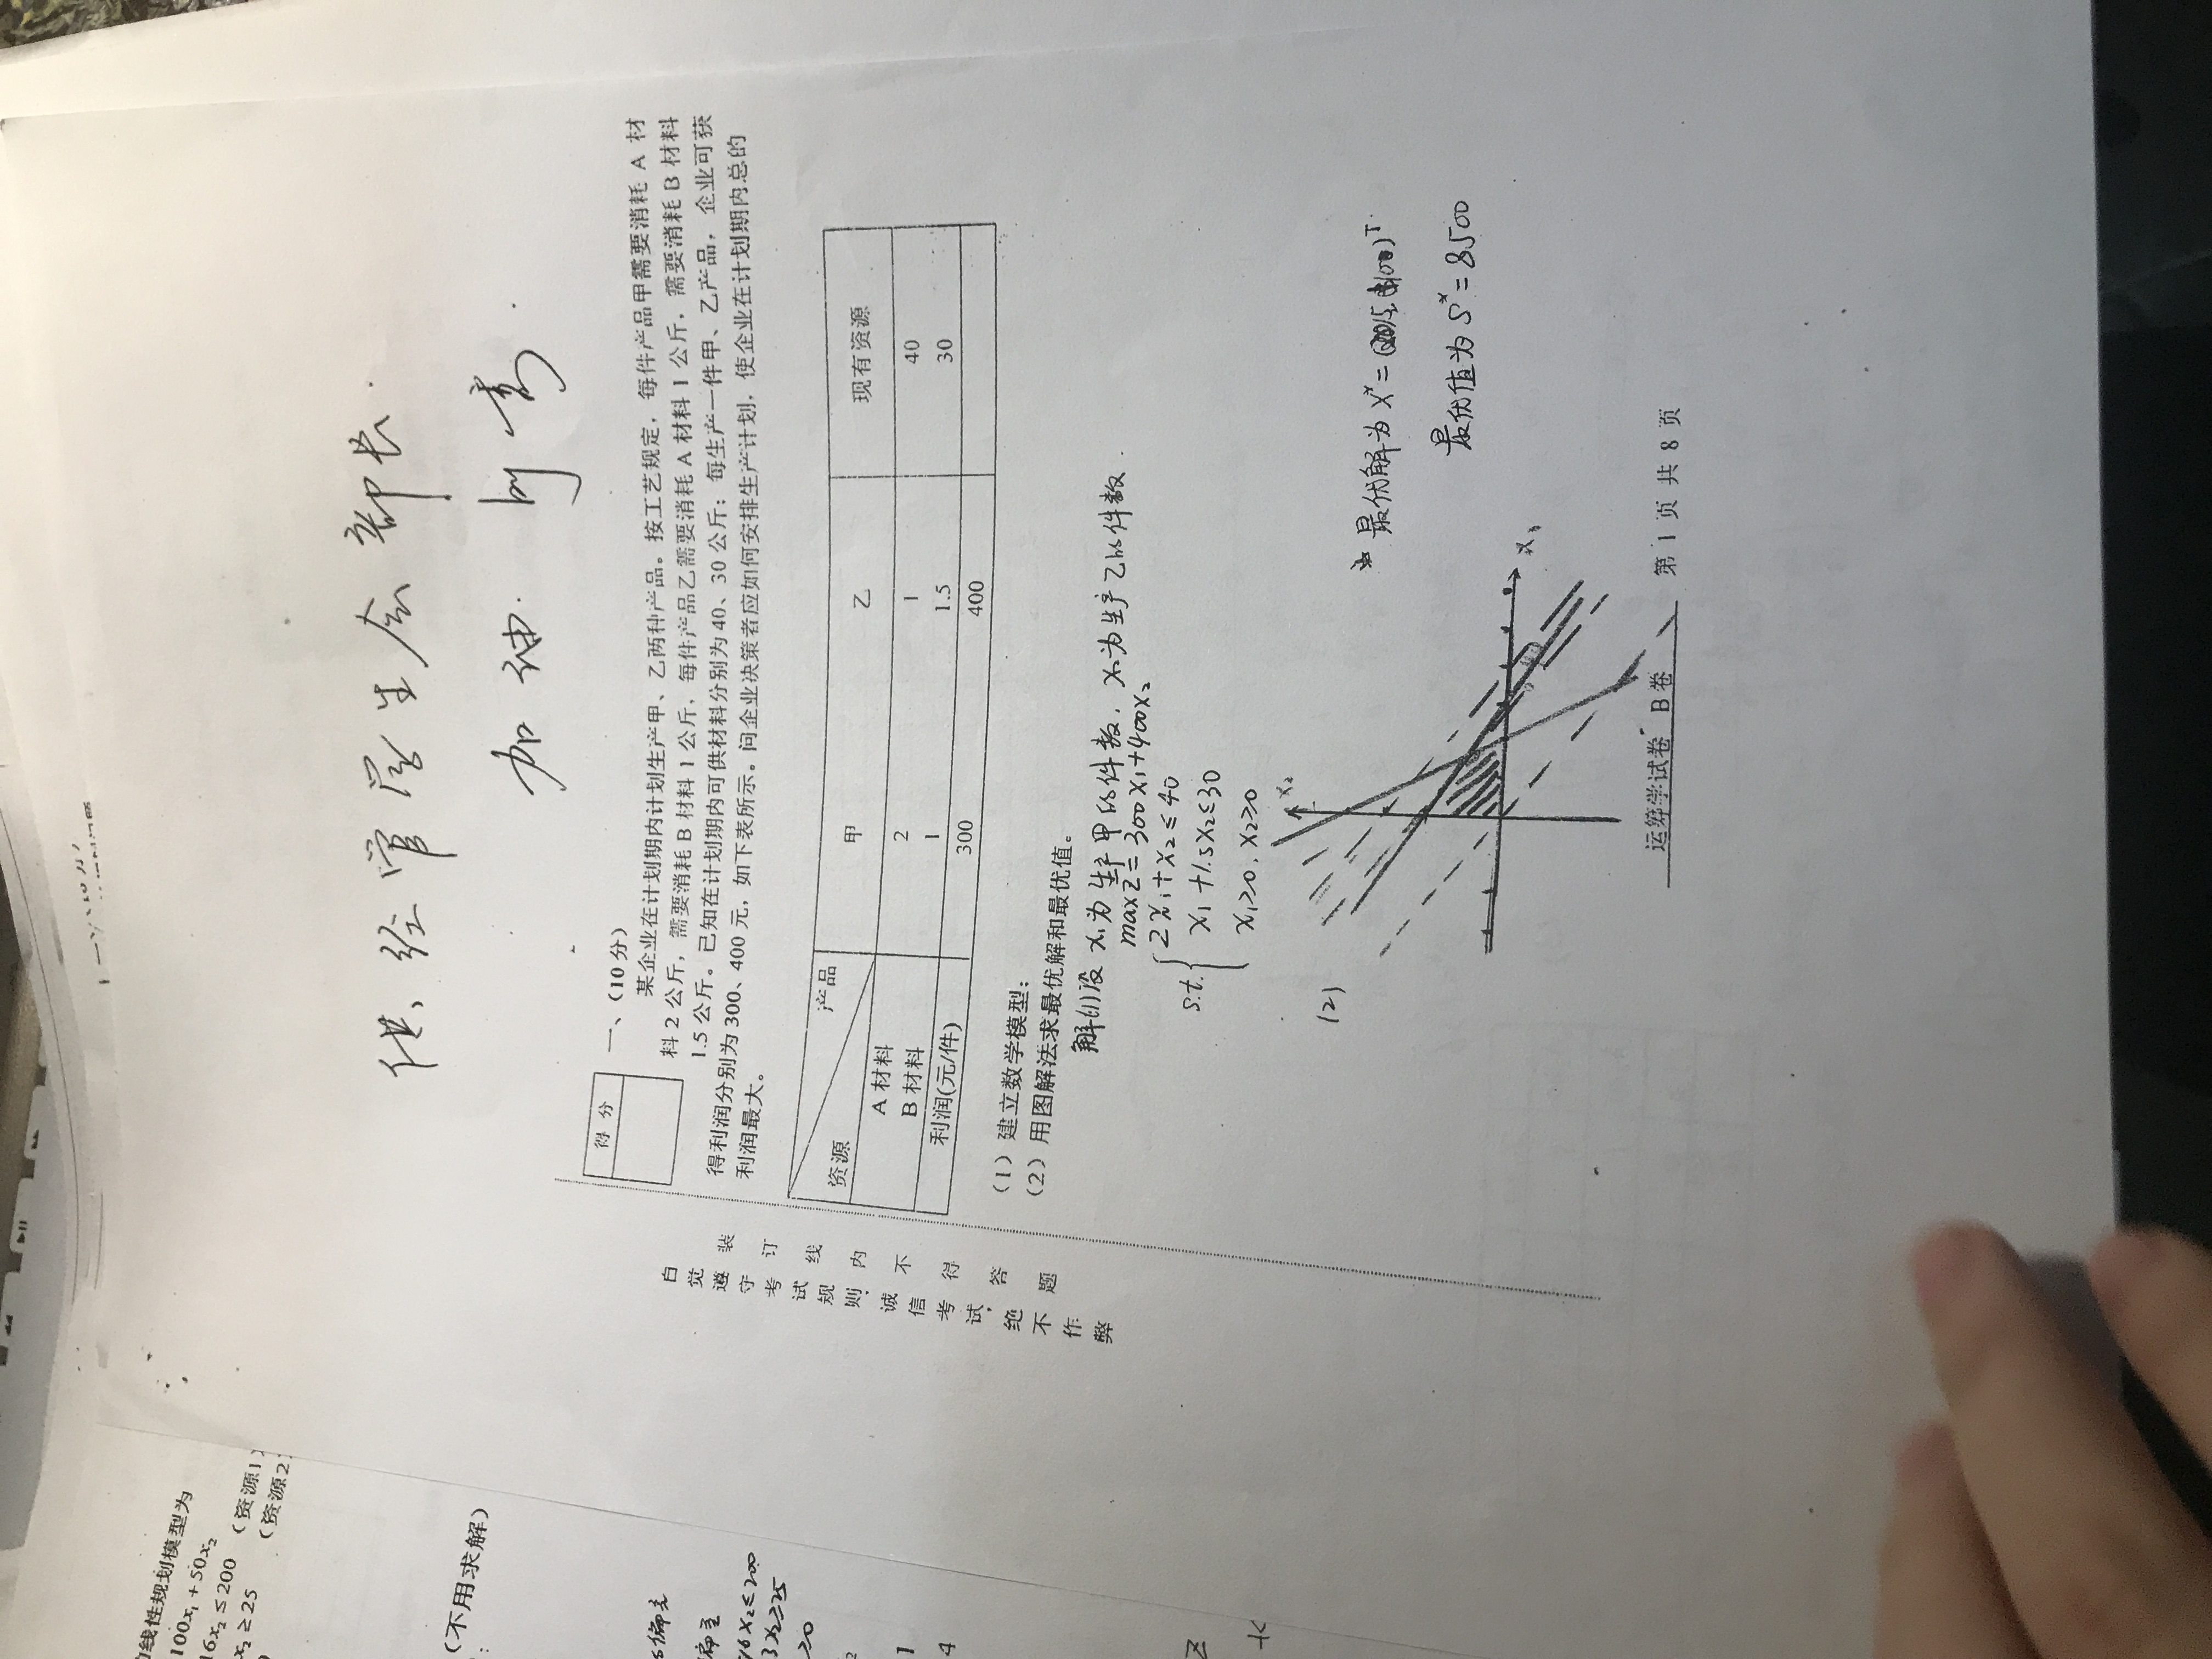 线性规划模型为
100x₁+50x₂
16x₂≤200 （资源1）
x₂≥25 （资源2）
（不用求解）
16x₂≤200
3x₂≥25
≥0
1
4
供经管学生会部长.
加油. by
得 分
一、（10分）
某企业在计划期内计划生产甲、乙两种产品。按工艺规定，每件产品甲需要消耗 A 材
料 2 公斤，需要消耗 B 材料 1 公斤，每件产品乙需要消耗 A 材料 1 公斤，需要消耗 B 材料
1.5 公斤。已知在计划期内可供材料分别为 40、30 公斤；每生产一件甲、乙产品，企业可获
得利润分别为 300、400 元，如下表所示。问企业决策者应如何安排生产计划，使企业在计划期内总的
利润最大。
产品
资源 甲 乙 现有资源
A 材料 2 1 40
B 材料 1 1.5 30
利润(元/件) 300 400
（1）建立数学模型；
（2）用图解法求最优解和最优值。
自觉遵守考试规则，诚信考试，绝不作弊
装订线内不得答题
解(1)设 x₁为生产甲的件数. x₂为生产乙的件数.
maxZ=300x₁+400x₂
2x₁+x₂≤40
s.t. x₁+1.5x₂≤30
x₁≥0, x₂≥0
(2)
x₂
x₁
最优解为 X*=(15, 10)ᵀ
最优值为 S*=8500
运筹学试卷 B卷 第 1 页 共 8 页